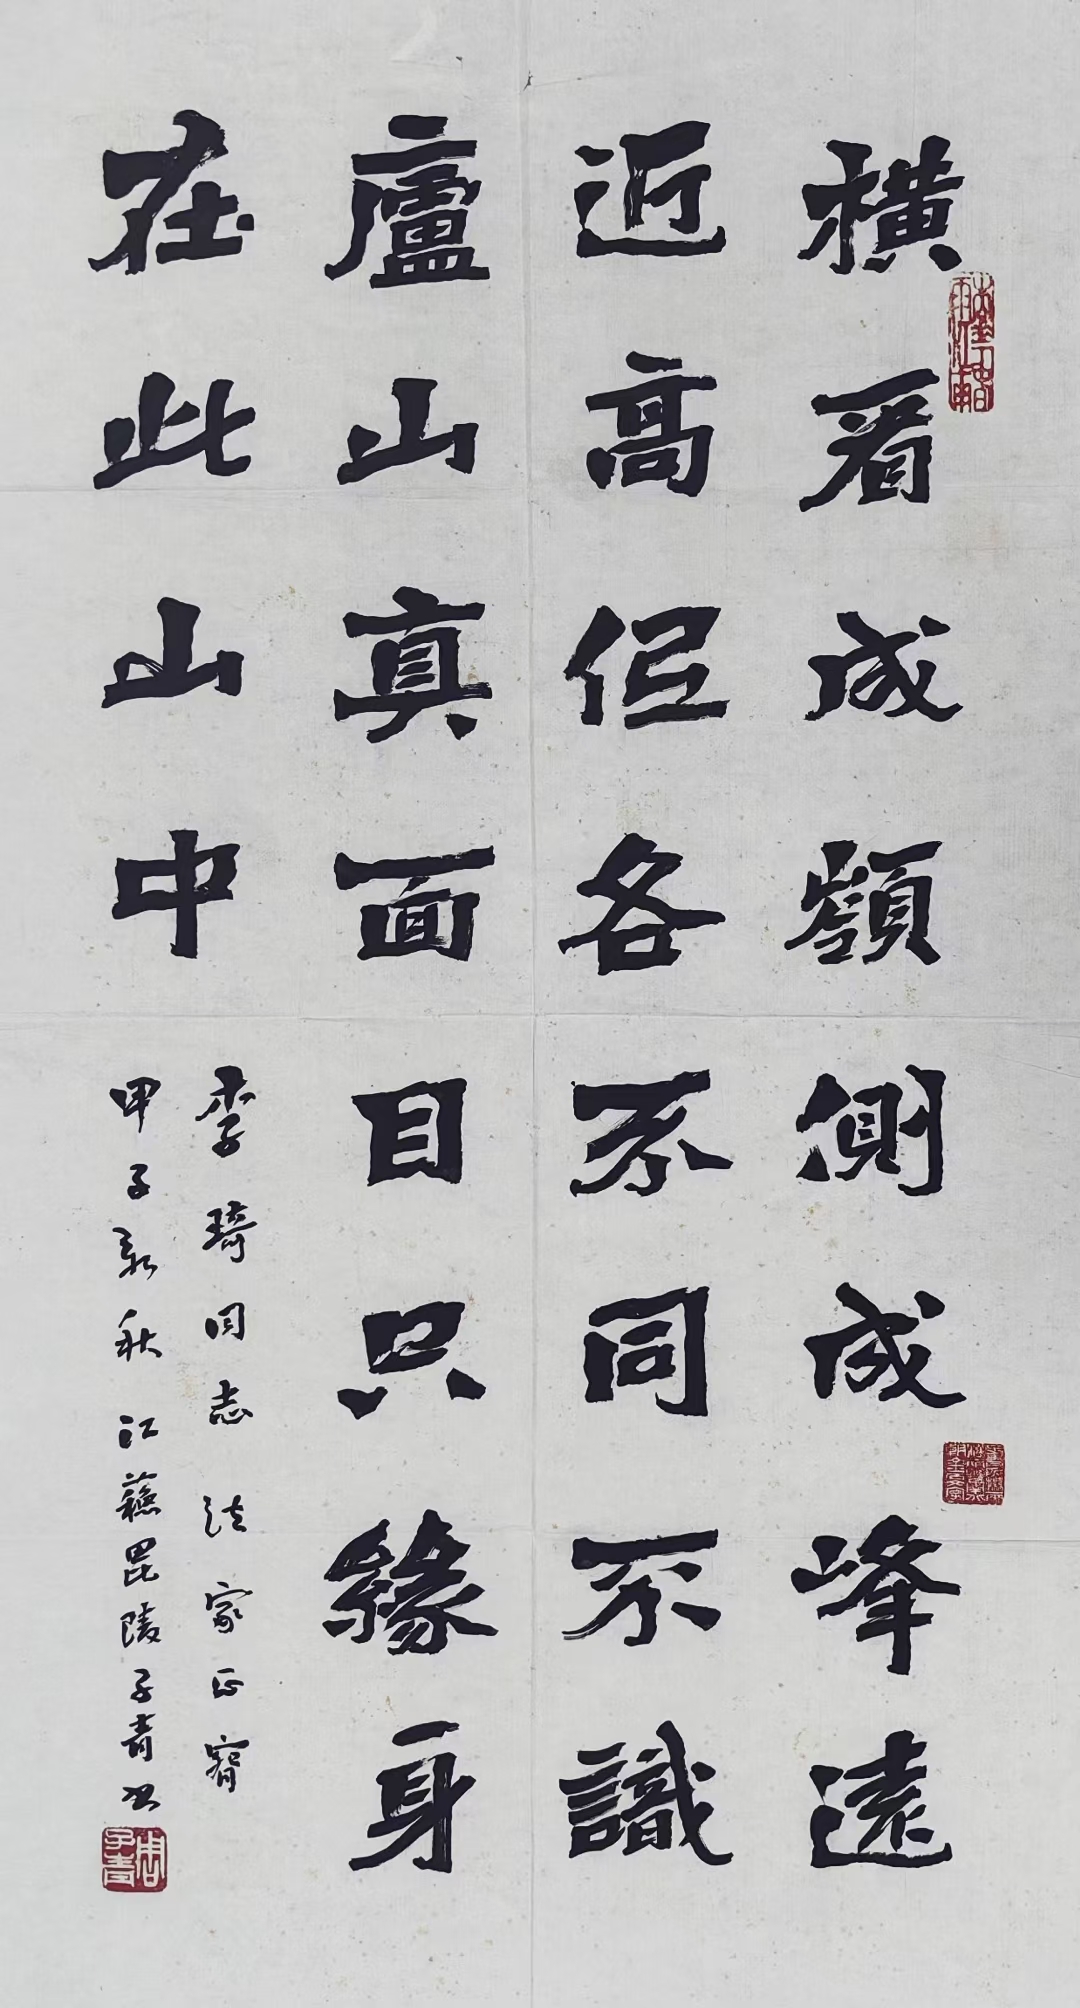 橫看成嶺側成峰遠
近高低各不同不識
廬山真面目只緣身
在此山中
李琦同志 法家正腕
甲子新秋 江蘇毘陵子青书
周子青